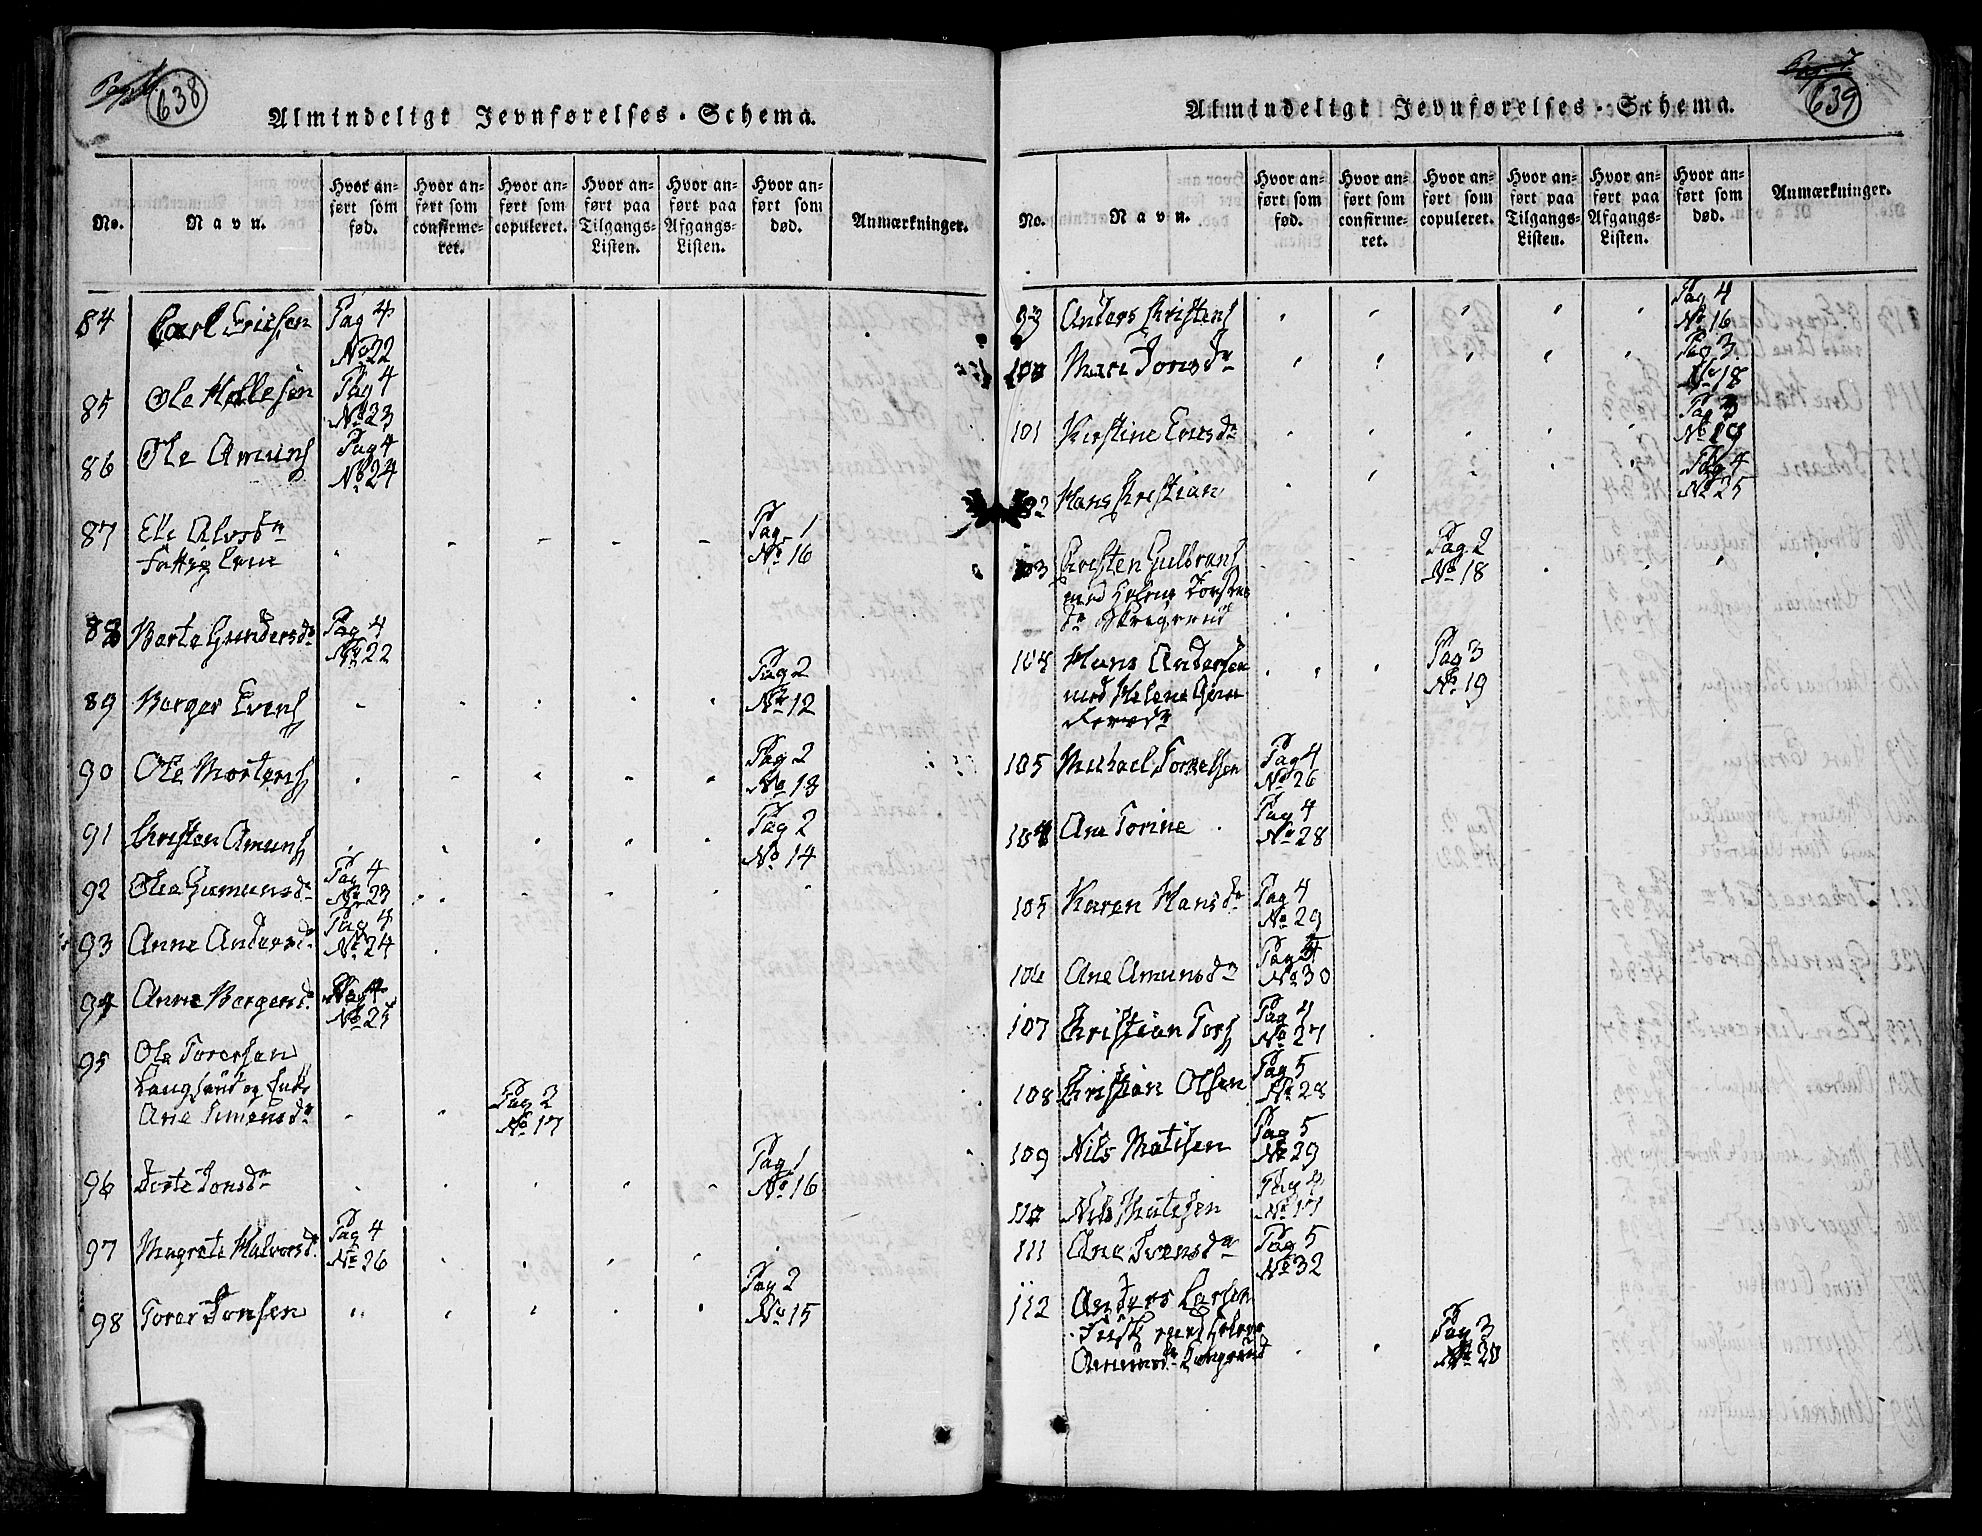 638
Almindeligt Jevnførelses-Schema.
No.
Navn.
Hvor an-
ført som
fød.
Hvor an-
ført som
confirme-
ret.
Hvor an-
ført som
copuleret.
Hvor an-
ført paa
Tilgangs-
Listen.
Hvor an-
ført paa
Afgangs-
Listen.
Hvor an-
ført som
død.
Anmærkninger.
84 Carl Ericsen Pag 4
No 22
85 Ole Hellesen Pag 4
No 23
86 Ole Amuns Pag 4
No 24
87 Ele Alvsdr Pag 1
No 16
fattig
88 Barte Gundersdr Pag 4
No 22
89 Borger Evens Pag 2
No 12
90 Ole Mortens Pag 2
No 13
91 Christen Amuns Pag 2
No 14
92 Olea Gumunsdr Pag 4
No 23
93 Anne Andersdr Pag 4
No 24
94 Anne Borgersdr Pag 4
No 25
95 Ole Torersen
Ane Simensdr Pag 2
No 17
96 Dorte Jonsdr Pag 1
No 16
97 Magrete Halvorsdr Pag 4
No 26
98 Torer Jonsen Pag 2
No 15
639
Almindeligt Jevnførelses-Schema.
No.
Navn.
Hvor an-
ført som
fød.
Hvor an-
ført som
confirme-
ret.
Hvor an-
ført som
copuleret.
Hvor an-
ført paa
Tilgangs-
Listen.
Hvor an-
ført paa
Afgangs-
Listen.
Hvor an-
ført som
død.
Anmærkninger.
Anders Christens Pag 4
No 16
100 Mari Jonsdr Pag 3
No 18
101 Kirstine Ericsdr Pag 3
No 19
Hans Christian Pag 4
No 25
103 Christen Gulbrans Pag 2
No 18
med Helene
Hans Andersen Pag 3
No 19
med Helene
105 Michael Torkelsen Pag 4
No 26
104 Ane Torine Pag 4
No 28
105 Karen Hansdr Pag 4
No 29
106 Ane Amunsdr Pag 4
No 30
107 Christian Tors Pag 4
No 27
108 Christian Olsen Pag 5
No 28
109 Nils Matisen Pag 5
No 29
110 Nils Matisen Pag 4
No 17
111 Ane Svensdr Pag 5
No 32
112 Anders Larsen
Amunsdr Pag 3
No 20